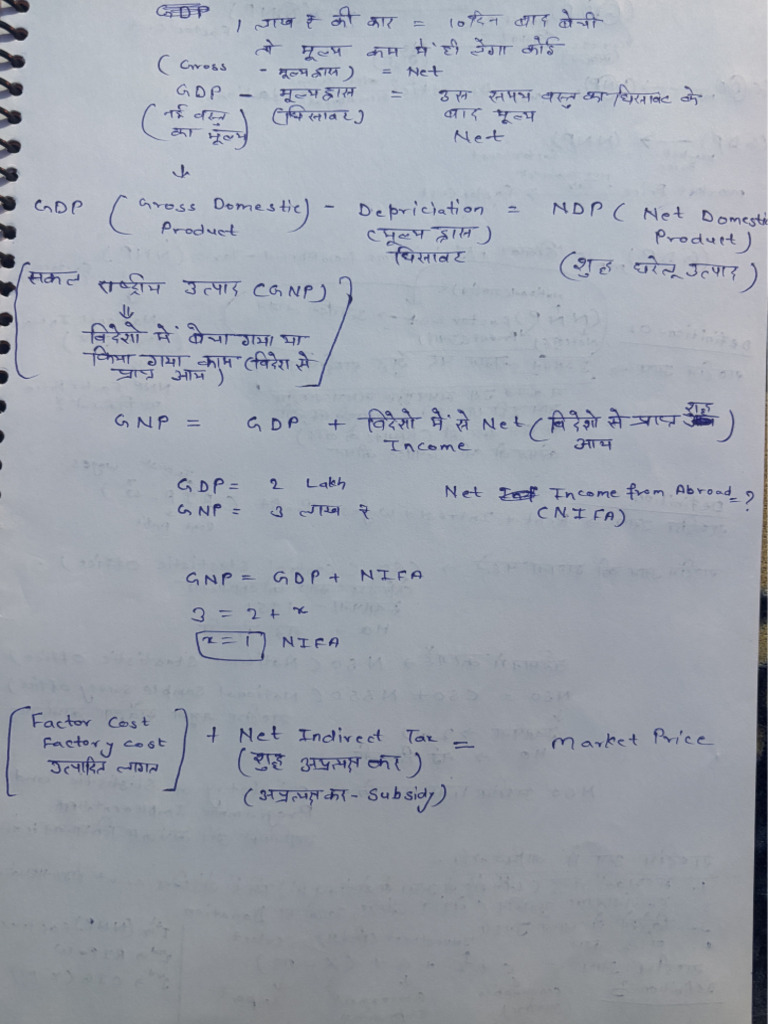 1 लाख ₹ की कार = 10 दिन बाद बेची
तो मूल्य कम में ही लेगा कोई
(Gross - मूल्यह्रास) = Net
GDP - मूल्यह्रास = उस समय वस्तु का घिसावट के बाद मूल्य
(नई वस्तु का मूल्य) (घिसावट) Net
↓
GDP (Gross Domestic Product) - Depriciation = NDP (Net Domestic Product)
(मूल्य ह्रास) घिसावट (शुद्ध घरेलू उत्पाद)
[सकल राष्ट्रीय उत्पाद (GNP)]
⇓
विदेशो में बेचा गया या
किया गया काम (विदेश से
प्राप्त आय)
GNP = GDP + विदेशो में से Net Income (विदेशो से प्राप्त शुद्ध आय)
GDP = 2 Lakh
GNP = 3 लाख ₹
Net Income from Abroad = ?
(NIFA)
GNP = GDP + NIFA
3 = 2 + x
x = 1 NIFA
[Factor Cost + Net Indirect Tax = Market Price
Factory Cost (शुद्ध अप्रत्यक्ष कर)
उत्पादित लागत] (अप्रत्यक्ष कर - Subsidy)